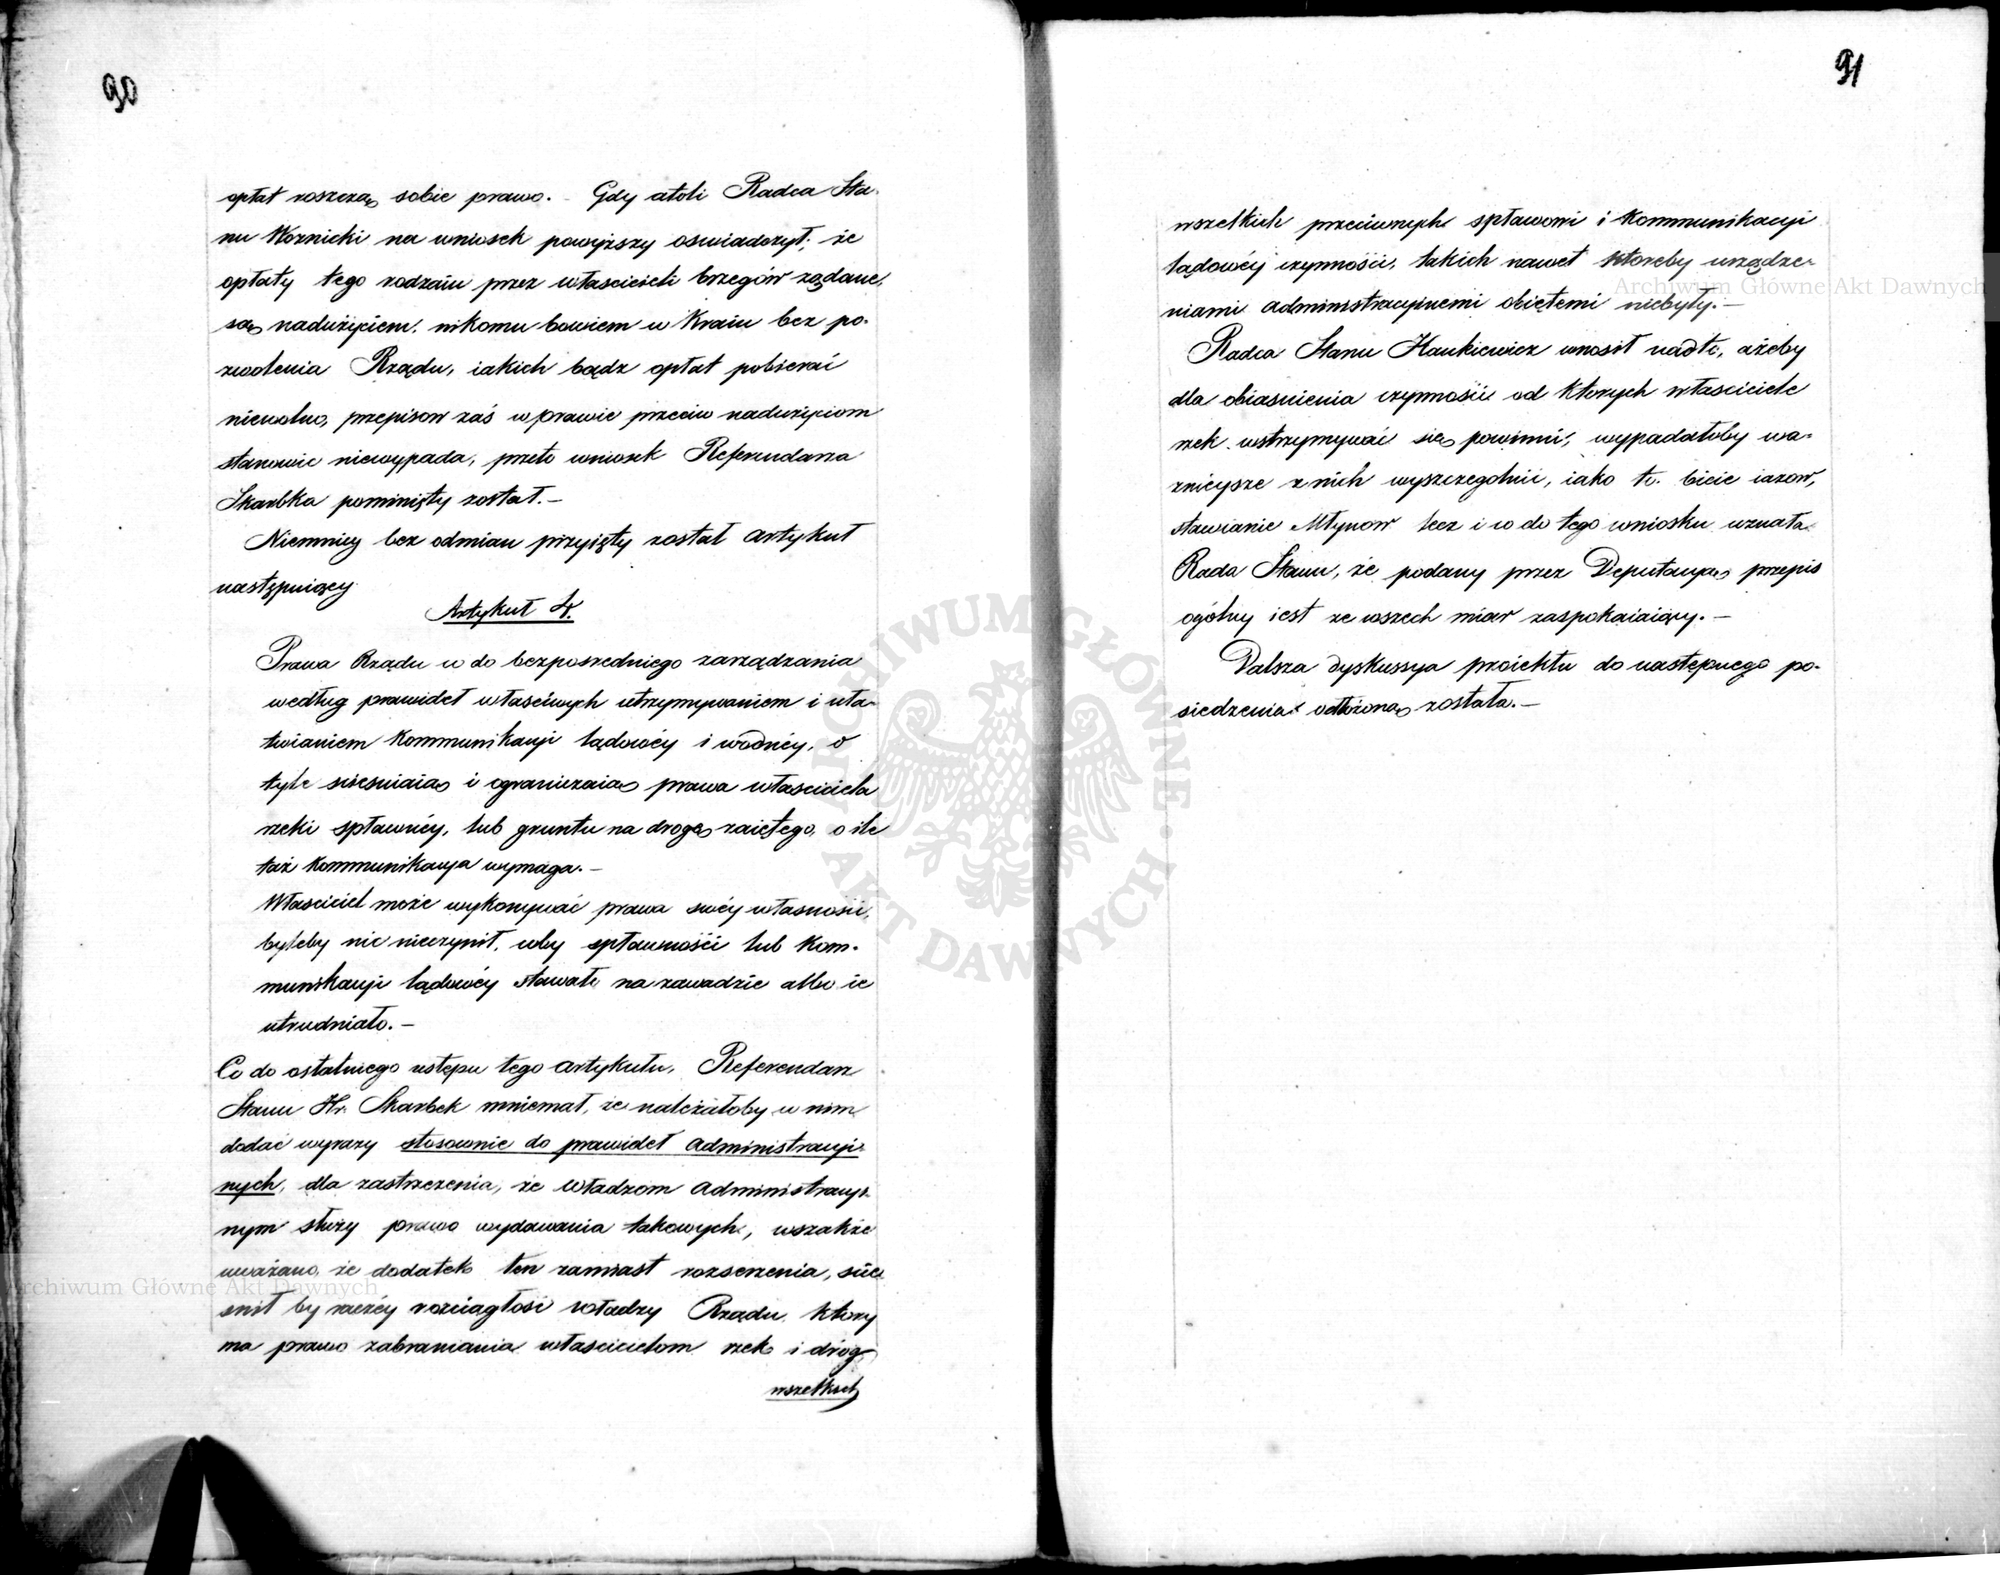 90
opłat roszczą sobie prawo. – Gdy atoli Radca Sta-
nu Woznicki na wniosek powyższy oswiadczył, że
opłaty tego rodzaiu przez właścicieli brzegów żądane,
są nadużyciem, nikomu bowiem w Kraiu bez po-
zwolenia Rządu, iakich bądz opłat pobierać
niewolno, przepisow zaś w prawie przeciw nadużyciom
stanowic niewypada, przeto wniosek Referendarza
Skarbka pominięty został. –
Niemniey bez odmian przyięty został artykuł
następuiący
Artykuł 4.
Prawa Rządu w do bezposredniego zarządzania
według prawideł właściwych utrzymywaniem i uła-
twianiem kommunikacyi lądowéy i wodnéy, o
tyle scieśniaią i ograniczaią prawa właściciela
rzeki spławnéy, lub gruntu na drogę zaiętego, o ile
taż kommunikacya wymaga. –
Właściciel może wykonywać prawa swéy własności,
byleby nic nieczynił, coby spławności lub kom-
munikacyi lądowéy stawało na zawadzie albo ie
utrudniało. –
Co do ostatniego ustępu tego artykułu, Referendarz
Stanu Hr. Skarbek mniemał, że należałoby w nim
dodać wyrazy stosownie do prawideł administracyi-
nych, dla zastrzezenia, że Władzom administracyi-
nym służy prawo wydawania takowych, wszakże
uważano, że dodatek ten zamiast rozszerzenia, scie-
snił by raczéy rozciągłość władzy Rządu, który
ma prawo zabraniania właścicielom rzek i dróg
wszelkich
91
wszelkich przeciwnych spławowi i kommunikacyi
lądowéy czynności, takich nawet ktoreby urządze-
niami administracyinemi obiętemi niebyły. –
Radca Stanu Hankiewicz wnosił nadto, ażeby
dla obiasnienia czynności od ktorych właściciele
rzek wstrzymywać się powinni, wypadałoby wa-
znieysze z nich wyszczegolnić, iako to: bicie iazow,
stawianie Młynow lecz i w do tego wniosku uznała
Rada Stanu, że podany przez Deputacyą przepis
ogólny iest ze wszech miar zaspokaiaiący. –
Dalsza dyskussya proiektu do następnego po-
siedzenia odłożoną została. –
ARCHIWUM GŁÓWNE AKT DAWNYCH
Archiwum Główne Akt Dawnych
Archiwum Główne Akt Dawnych